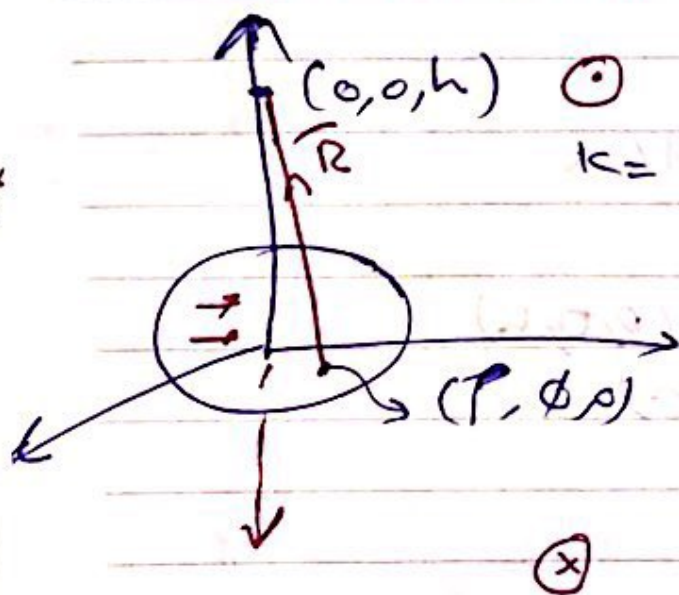 (0,0,h) ⊙
R
K=
(ρ, ϕ, 0)
⊗